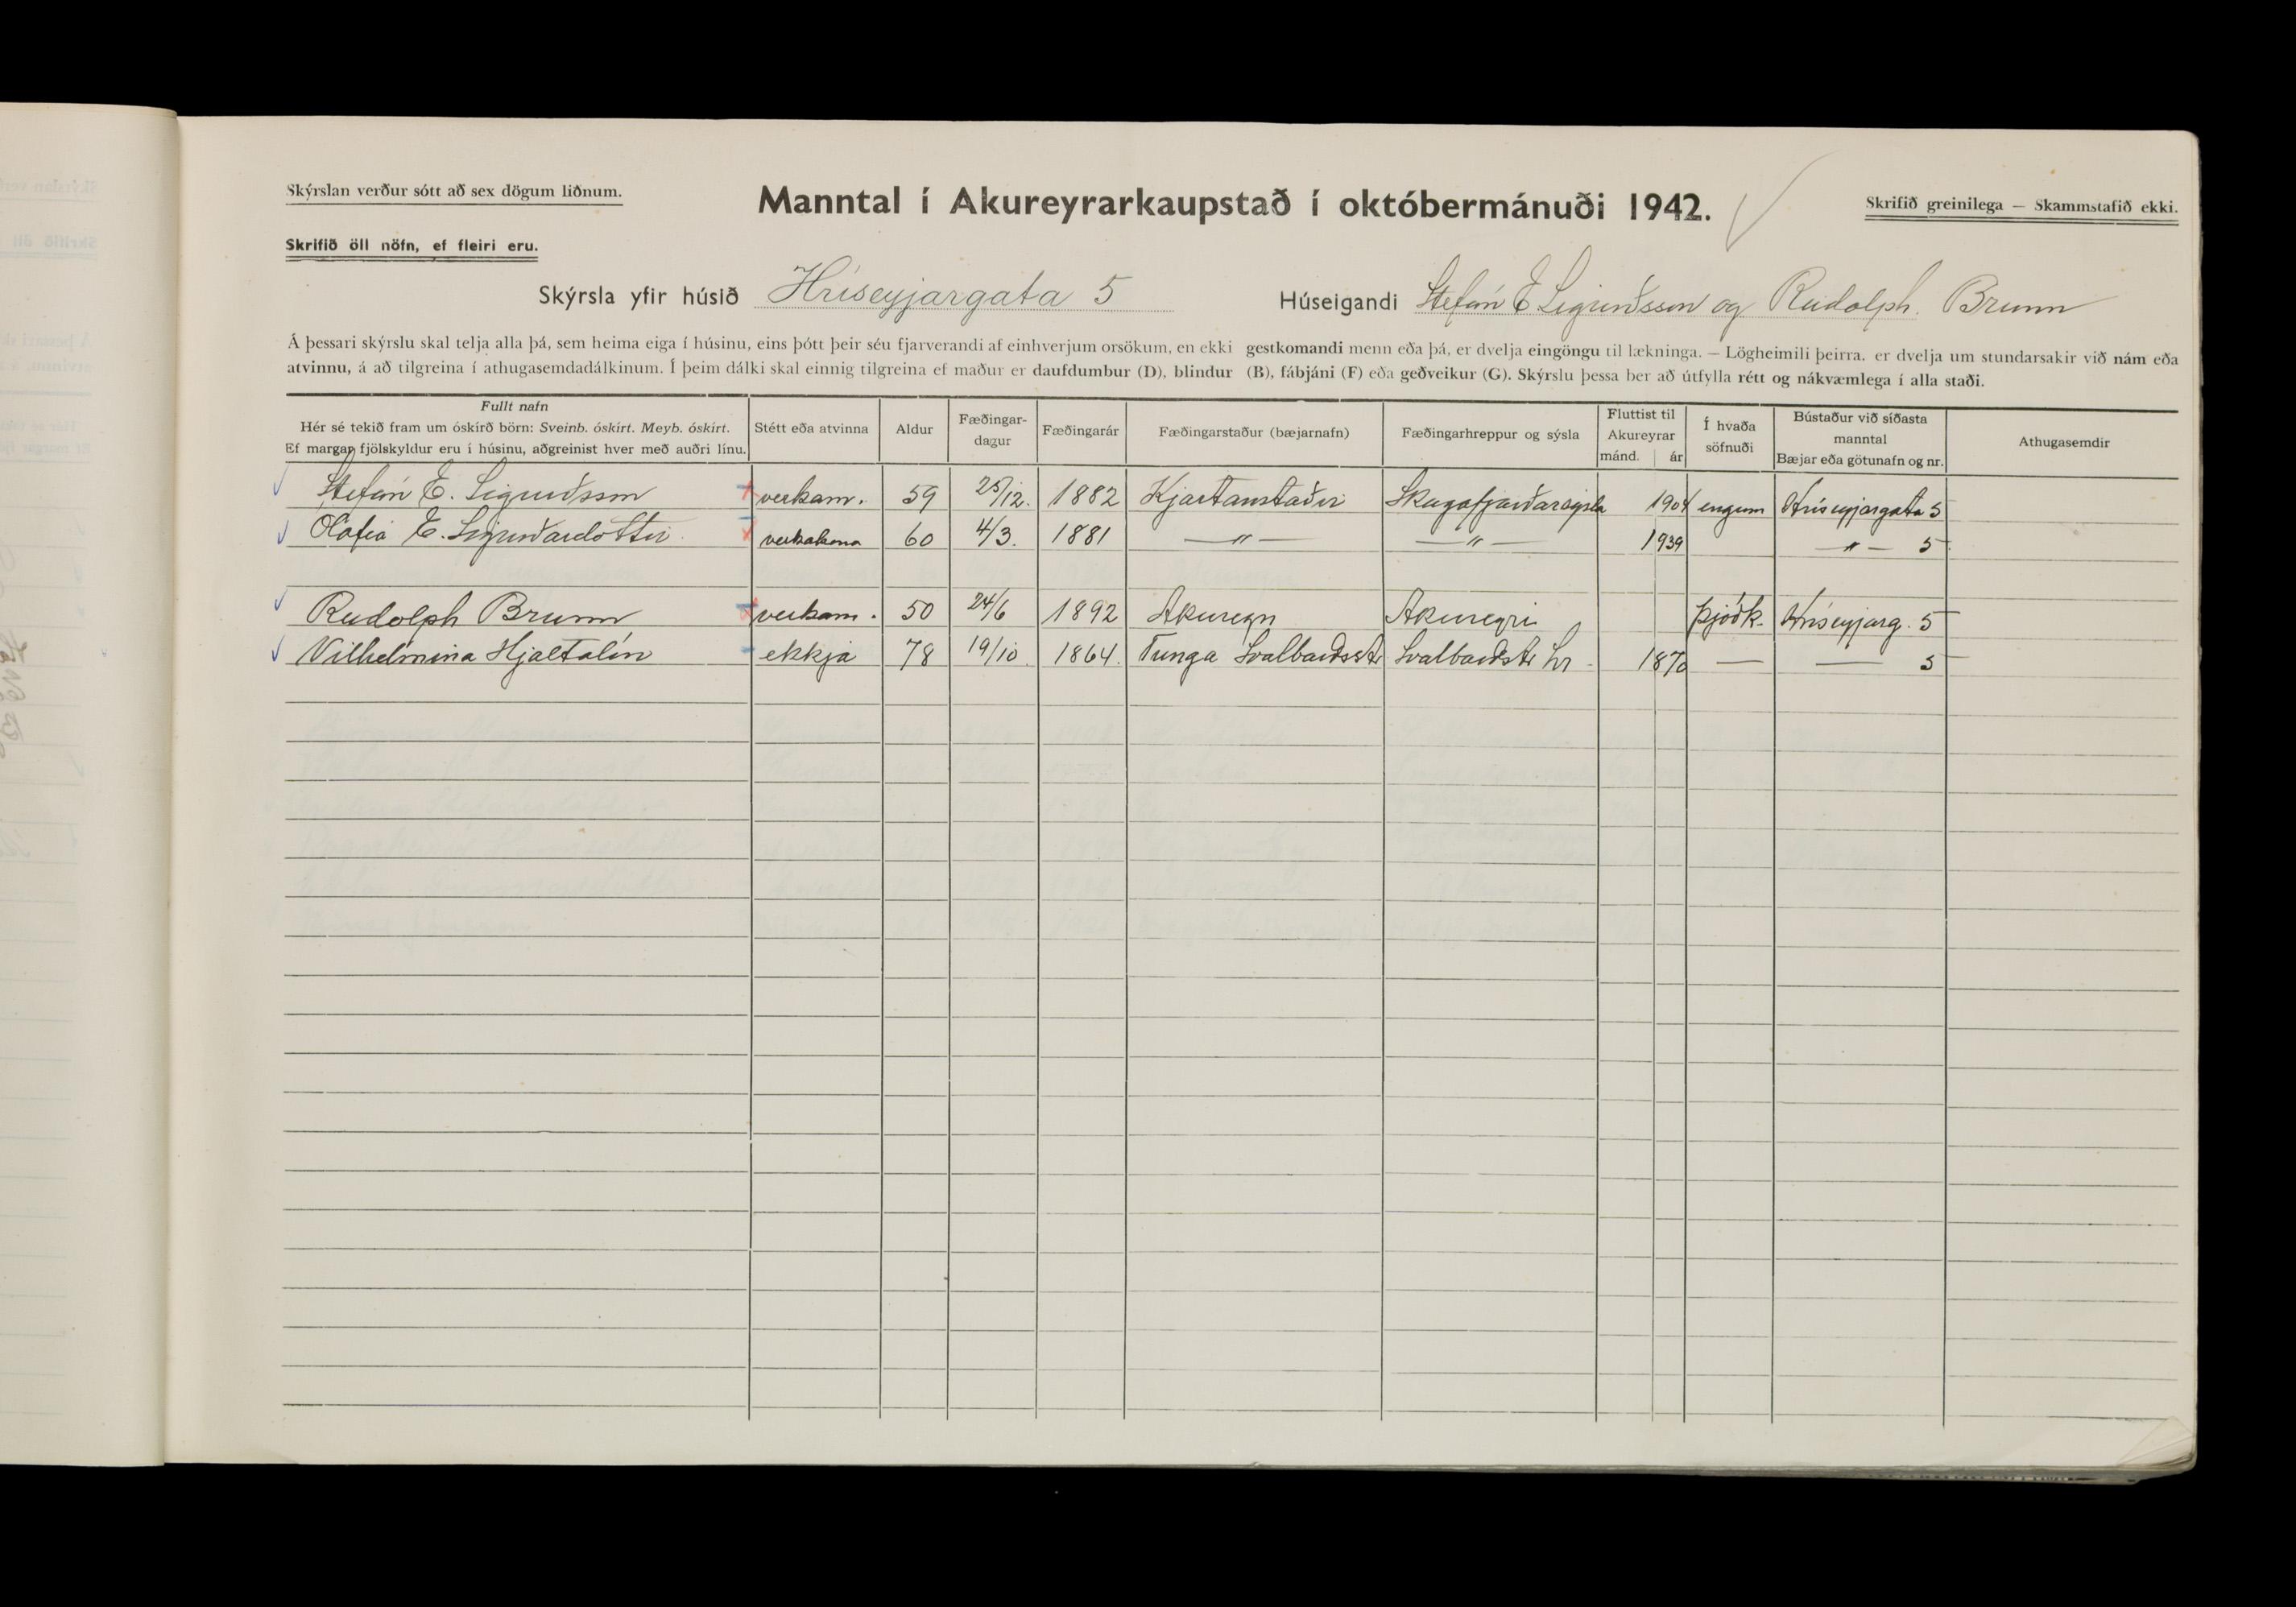 Skýrslan verður sótt að sex dögum liðnum.
Manntal í Akureyrarkaupstað í októbermánuði 1942.
Skrifið greinilega — Skammstafið ekki.
Skrifið öll nöfn, ef fleiri eru.
Skýrsla yfir húsið Hríseyjargata 5
Húseigandi Stefán E Sigurðsson og Rudolph. Brunn
Á þessari skýrslu skal telja alla þá, sem heima eiga í húsinu, eins þótt þeir séu fjarverandi af einhverjum orsökum, en ekki gestkomandi menn eða þá, er dvelja eingöngu til lækninga. — Lögheimili þeirra, er dvelja um stundarsakir við nám eða
atvinnu, á að tilgreina í athugasemdadálkinum. Í þeim dálki skal einnig tilgreina ef maður er daufdumbur (D), blindur (B), fábjáni (F) eða geðveikur (G). Skýrslu þessa ber að útfylla rétt og nákvæmlega í alla staði.
Fullt nafn
Hér sé tekið fram um óskírð börn: Sveinb. óskírt. Meyb. óskírt.
Ef margar fjölskyldur eru í húsinu, aðgreinist hver með auðri línu.
Stétt eða atvinna
Aldur
Fæðingar-
dagur
Fæðingarár
Fæðingarstaður (bæjarnafn)
Fæðingarhreppur og sýsla
Fluttist til
Akureyrar
mánd. ár
Í hvaða
söfnuði
Bústaður við síðasta
manntal
Bæjar eða götunafn og nr.
Athugasemdir
Stefán E. Sigurðsson verkam. 59 25/12. 1882 Kjartanstaðir Skagafjarðarsýsla 1904 engum Hríseyjargata 5
Ólafía E. Sigurðardóttir verkakona 60 4/3. 1881 —〃— —〃— 1939 —〃— 5
Rudolph Brunn verkam. 50 24/6 1892 Akureyri Akureyri Þjóðk. Hríseyjarg. 5
Vilhelmina Hjaltalín ekkja 78 19/10. 1864. Tunga Svalbarðsstr Svalbarðstr hr. 1870 — — 5